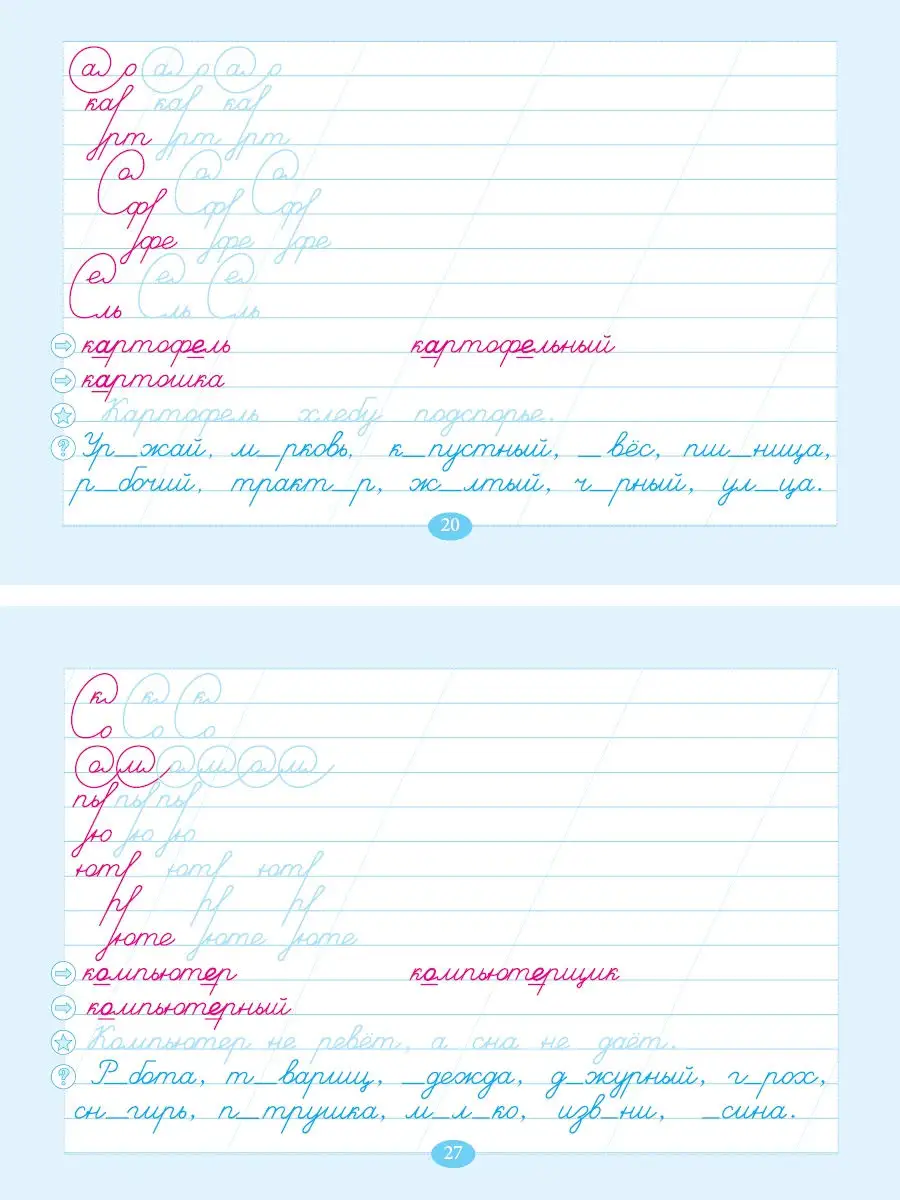 а о а о а о
ка ка ка
рт рт рт
о о о
оф оф оф
фе фе фе
ел ел ел
ль ль ль
картофель картофельный
картошка
Картофель хлебу подспорье.
Ур_жай, м_рковь, к_пустный, _вёс, пш_ница,
р_бочий, тракт_р, ж_лтый, ч_рный, ул_ца.
20
к к к
о о о
о м о м о м
пь пь пь
ю ю ю
ют ют ют
р р р
юте юте юте
компьютер компьютерщик
компьютерный
Компьютер не ревёт, а сна не даёт.
Р_бота, т_варищ, _дежда, д_журный, г_рох,
сн_гирь, п_трушка, м_л_ко, изв_ни, _сина.
27